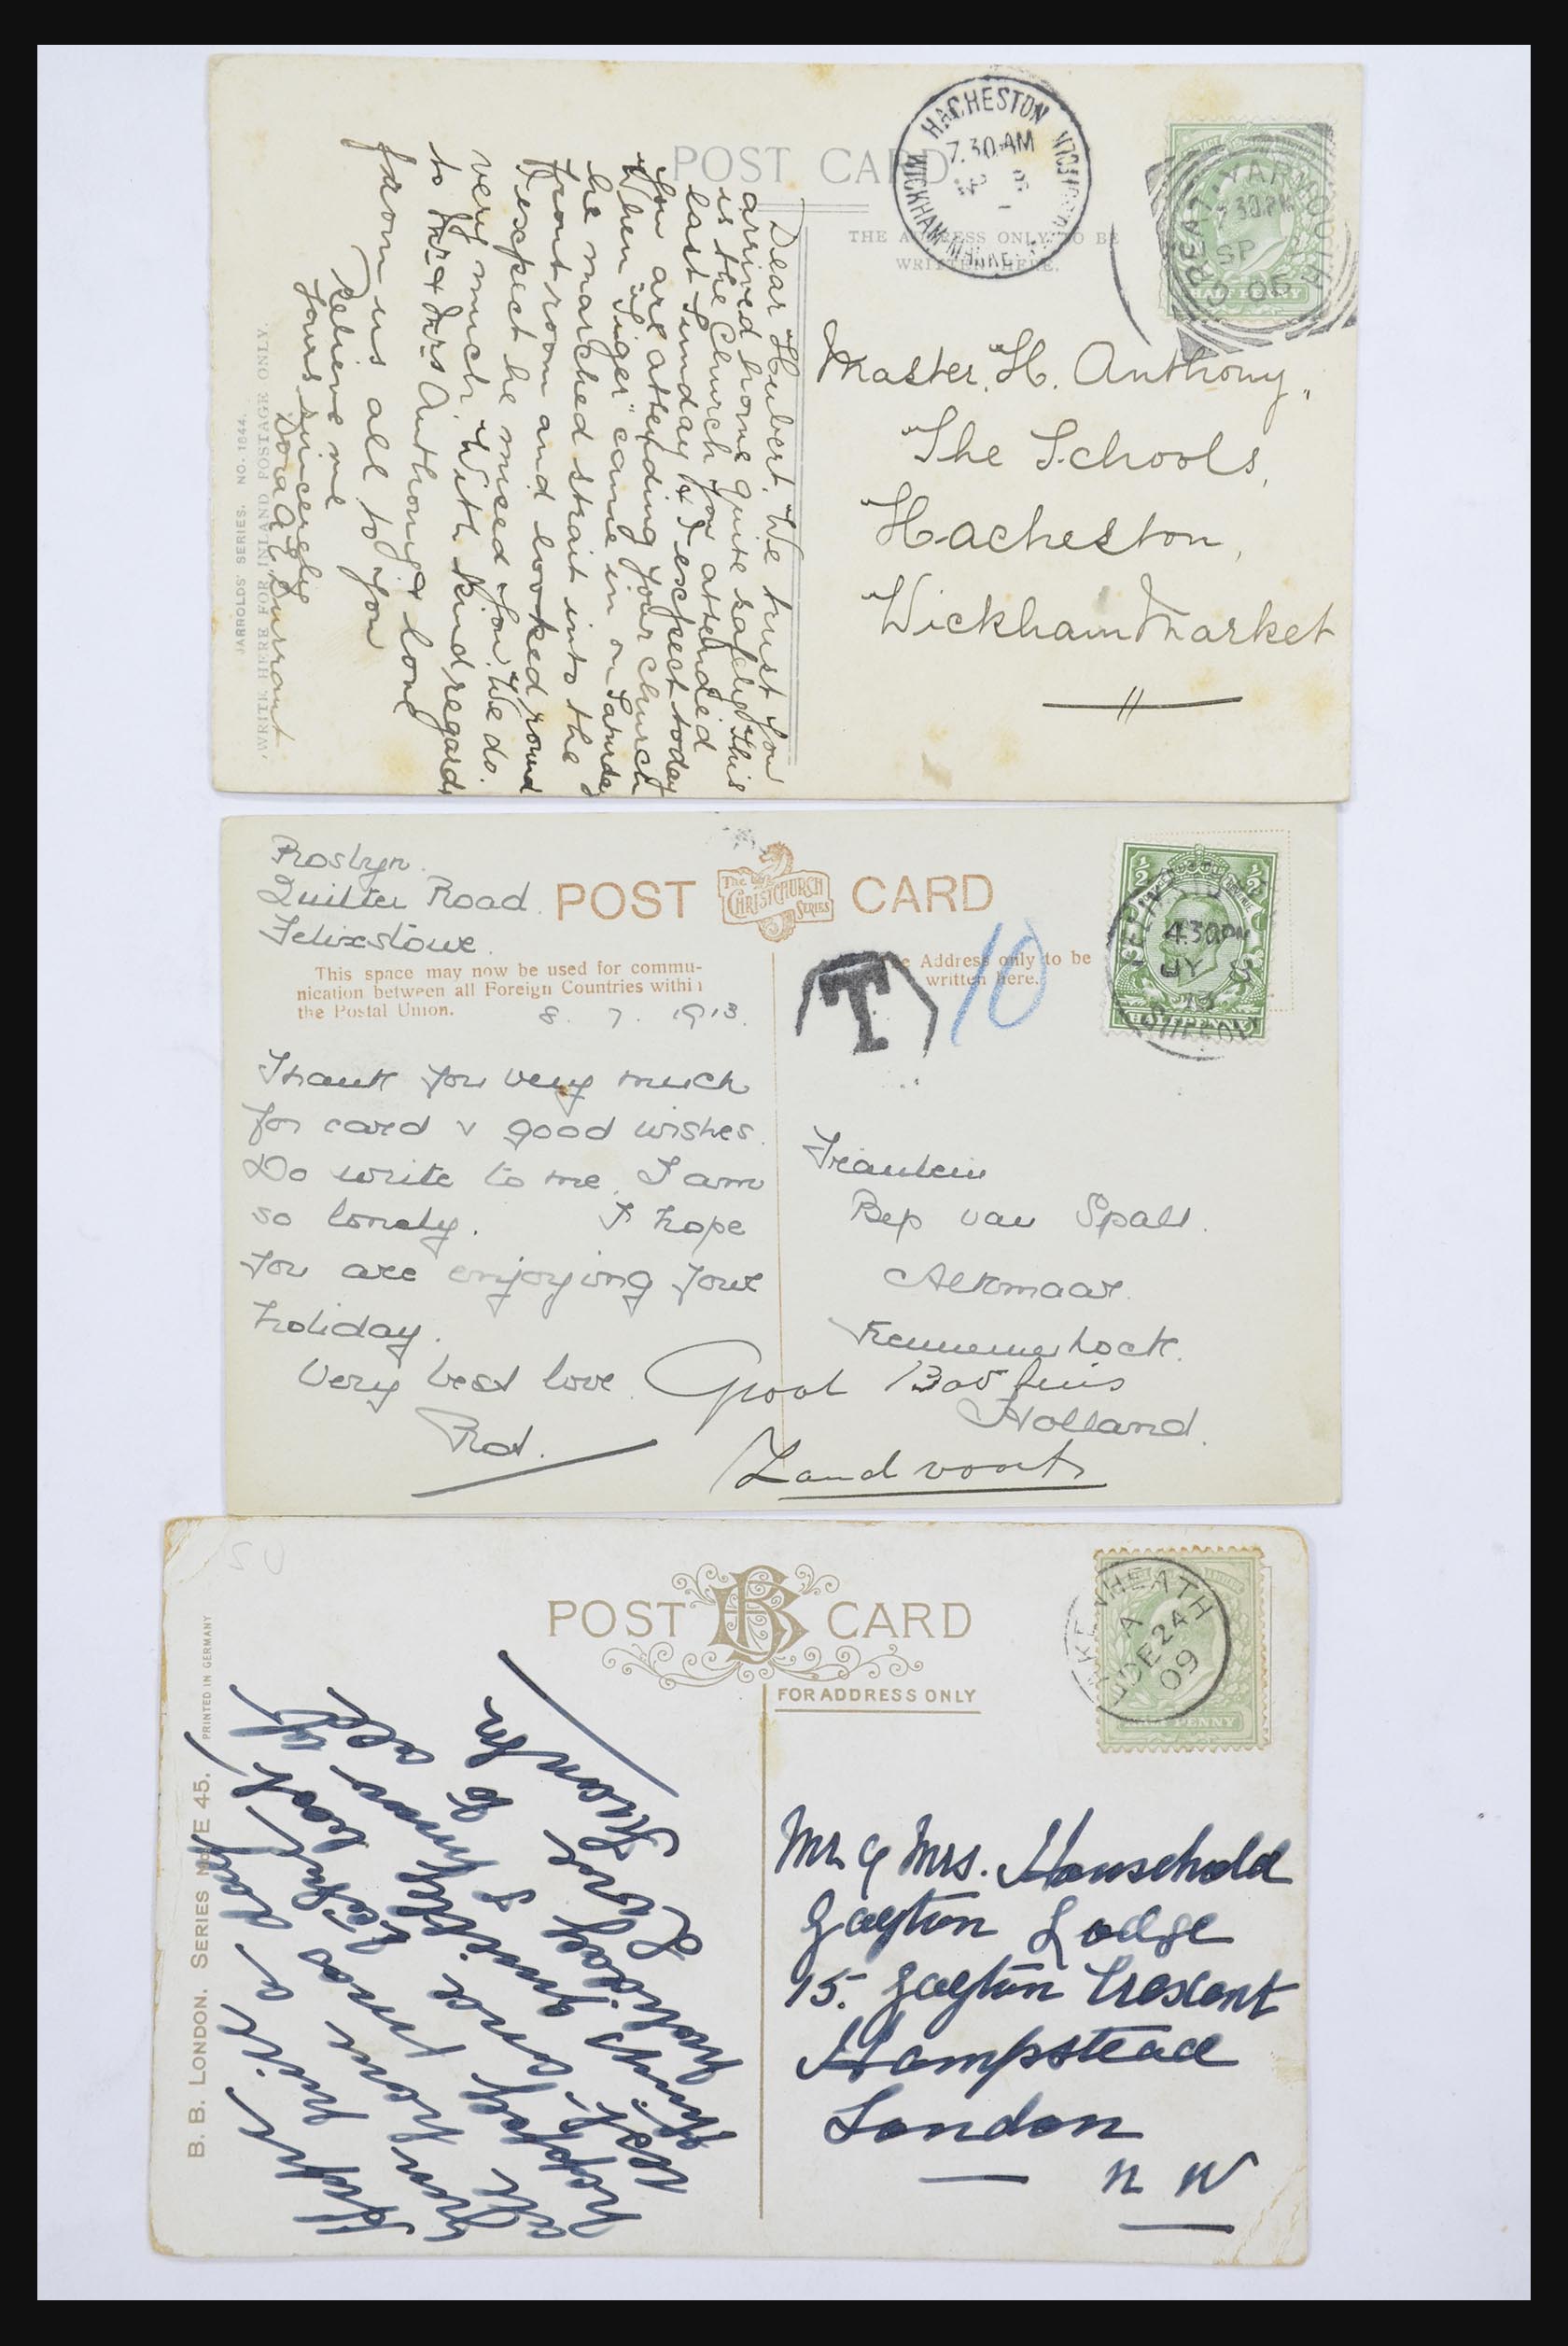 POST CARD
THE ADDRESS ONLY TO BE
WRITTEN HERE.
HACHESTON
7.30 AM
WICKHAM MARKET
GREAT YARMOUTH
7.30 PM
SP 2
06
HALF PENNY
Dear Hubert. We trust you
arrived home quite safely. This
is the Church you attended
last Sunday & I expect today
you are attending your church
When "Tiger" came in on Saturday
he marched strait into the
front room and looked round
I expect he missed you. We do.
very much. With kind regards
to Mr & Mrs Anthony & love
from us all to you
Believe me
Yours sincerely
Dora A. Durrant
WRITE HERE FOR INLAND POSTAGE ONLY.
JARROLDS' SERIES. NO. 1844.
Master. H. Anthony,
The Schools,
Hacheston,
Wickham Market
Roslyn.
Quilter Road.
Felixstowe.
POST CARD
The
CHRISTCHURCH
SERIES
This space may now be used for commu-
nication between all Foreign Countries withi
the Postal Union.
8. 7. 1913.
Address only to be
written here.
T
10
4.30 PM
JY 8
13
HALFPENNY
Thank you very much
for card & good wishes.
Do write to me. I am
so lonely. I hope
you are enjoying your
holiday.
Very best love.
Rot.
Fräulein
Bep van Spall.
Alkmaar.
Groot Badhuis
Holland.
Zandvoort
POST BB CARD
FOR ADDRESS ONLY
LAKENHEATH
A
DE 24
09
HALF PENNY
B. B. LONDON. SERIES No E 45. PRINTED IN GERMANY
Love to
Mr & Mrs. Household
Gayton Lodge
15. Gayton Crescent
Hampstead
London
N W